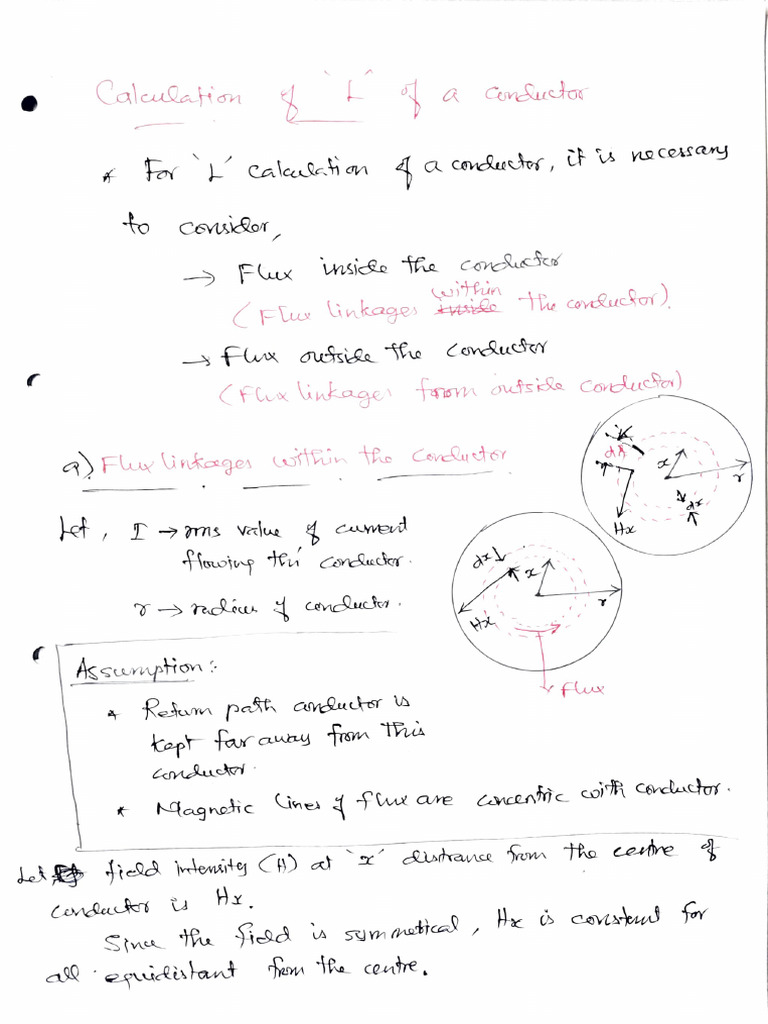 Calculation of 'L' of a conductor
* For 'L' calculation of a conductor, it is necessary
to consider,
→ Flux inside the conductor
(Flux linkages within the conductor).
→ Flux outside the conductor
(Flux linkages from outside conductor)
a) Flux linkages within the conductor
Let, I → rms value of current
flowing thr' conductor.
r → radius of conductor.
dl
x
r
dx
Hx
dx
x
r
Hx
Flux
Assumption:-
* Return path conductor is
kept far away from this
conductor.
* Magnetic lines of flux are concentric with conductor.
Let field intensity (H) at 'x' distance from the centre of
conductor is Hx.
Since the field is symmetical, Hx is constant for
all equidistant from the centre.